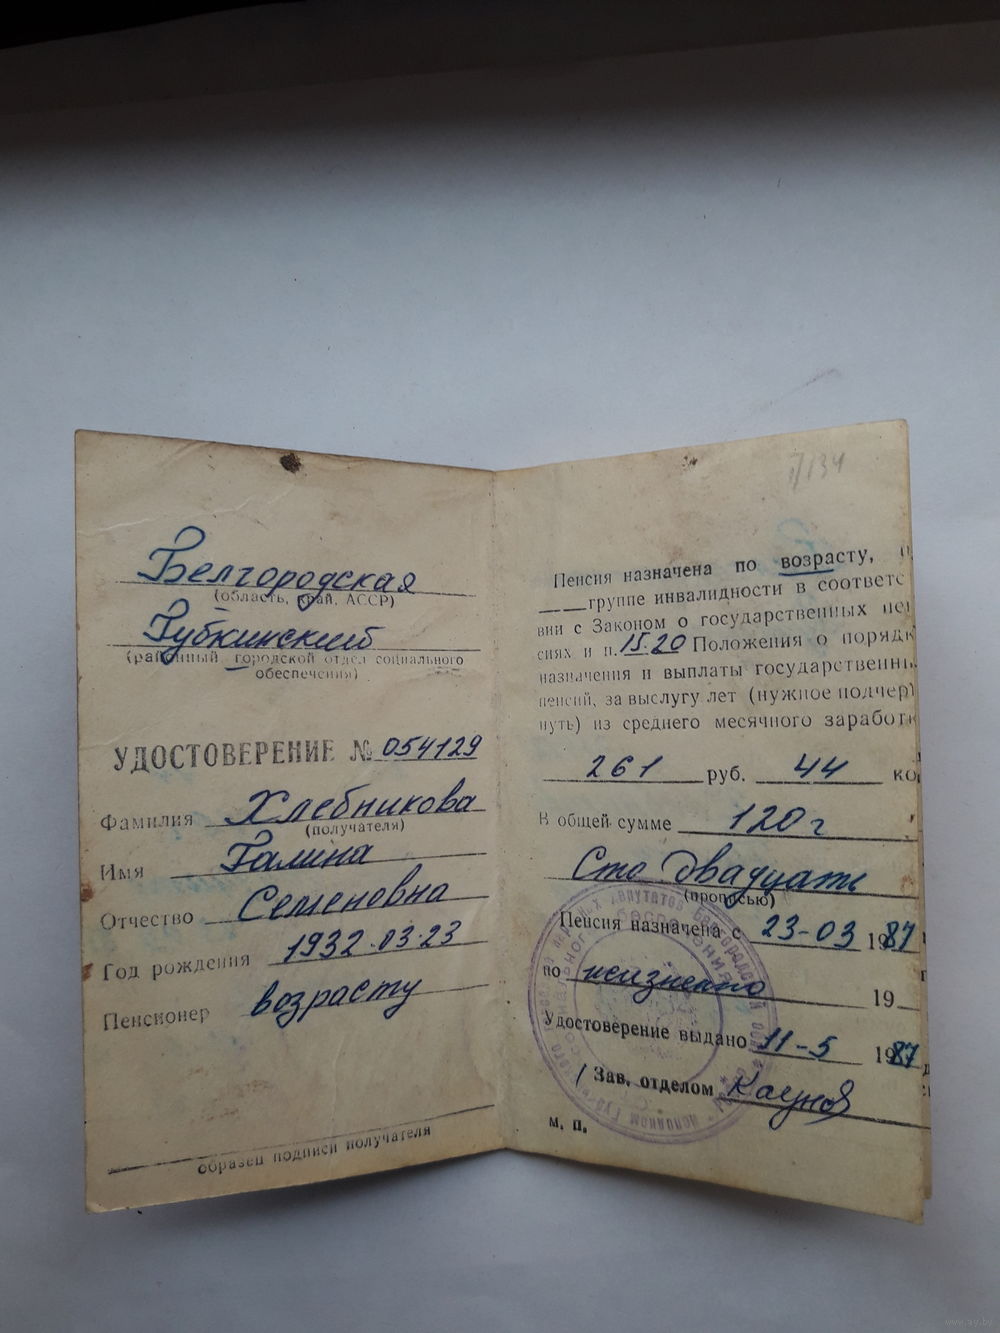 Белгородская
(область, край, АССР)
Губкинский
(районный городской отдел социального
обеспечения)
УДОСТОВЕРЕНИЕ № 054129
Фамилия Хлебникова
(получателя)
Имя Галина
Отчество Семеновна
Год рождения 1932.03.23
Пенсионер возрасту
образец подписи получателя
7134
Пенсия назначена по возрасту,
группе инвалидности в соответс
вии с Законом о государственных пен
сиях и п. 15.20 Положения о порядк
назначения и выплаты государственны
пенсий, за выслугу лет (нужное подчер
нуть) из среднего месячного заработк
261 руб. 44 ко
В общей сумме 120 г
Сто двадцать
(прописью)
Пенсия назначена с 23-03 1987
по неизменно 19
Удостоверение выдано 11-5 1987
Зав. отделом Каунов
М. П.
www.ay.by